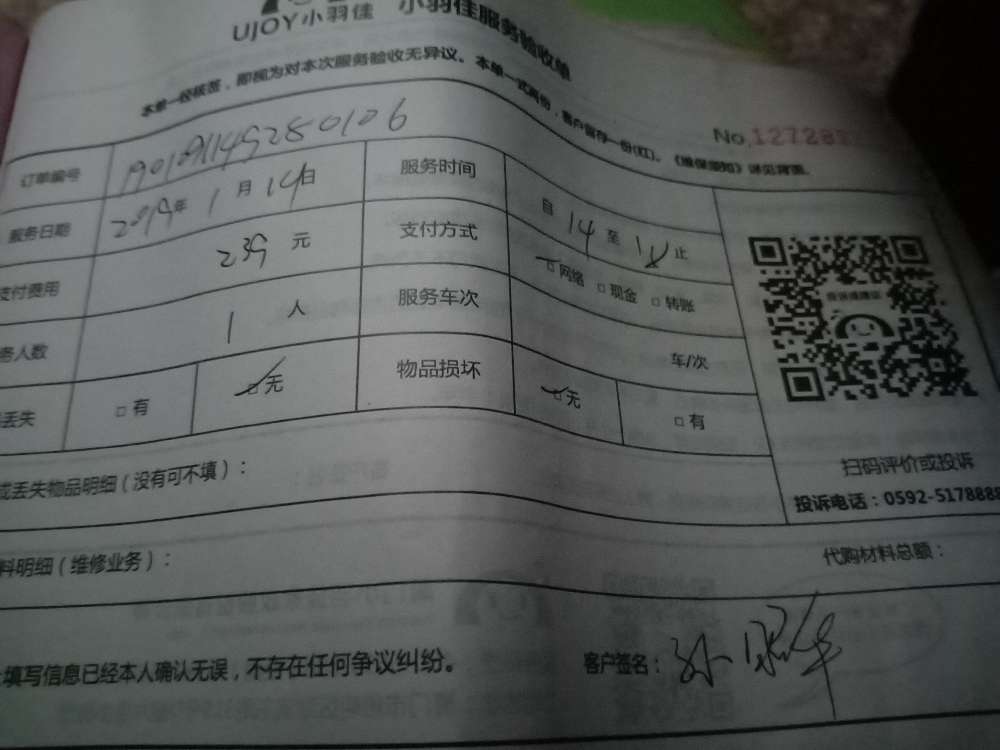 UJOY小羽佳 小羽佳服务验收单
本单一经核签，即视为对本次服务验收无异议。本单一式两份，客户留存一份(红)。《维保须知》详见背面。
No.127283
订单编号
服务日期 2019年 1月 14日 服务时间 自 14 至 18 止
支付费用 239 元 支付方式 □网络 □现金 □转账
务人数 1 人 服务车次 车/次
丢失 □有 □无 物品损坏 □无 □有
扫码评价或投诉
投诉电话：0592-5178888
或丢失物品明细（没有可不填）：
料明细（维修业务）： 代购材料总额：
填写信息已经本人确认无误，不存在任何争议纠纷。 客户签名：